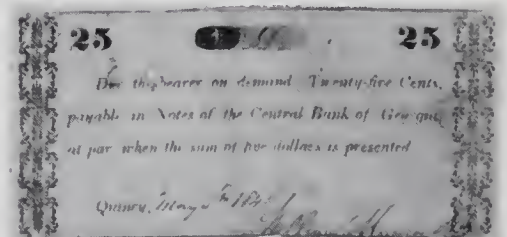 25 25
Due the bearer on demand, Twenty-five Cents,
payable in Notes of the Central Bank of Georgia,
at par when the sum of five dollars is presented
Quincy, May